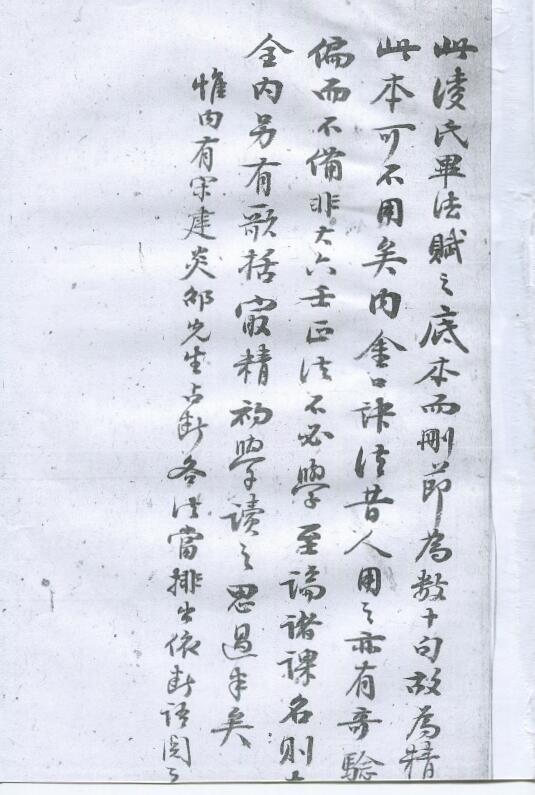 此淩氏畢法賦之底本而刪節為數十句故為精
此本可不用矣内金口訣法昔人用之亦有奇驗
偏而不備非大六壬正法不必學至論諸課名則
全内另有歌括最精初學讀之思過半矣
惟内有宋建炎邵先生占斷各法當排出依斷語閱之